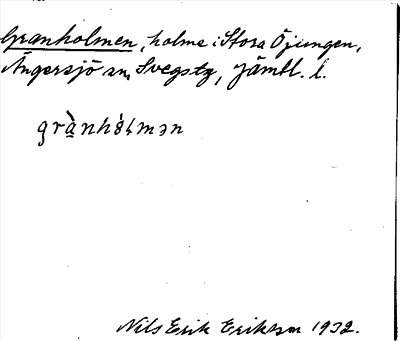 Granholmen, holme i Stora Öjungen,
Ängersjö sn, Svegstg, Jämtl. l.
grànhɷ́ɬmən
Nils Erik Eriksson 1932.